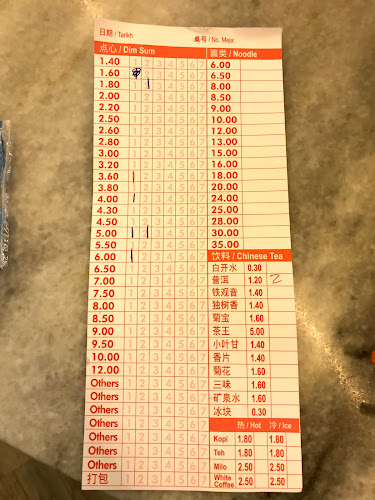 日期 / Tarikh
桌号 / No. Meja:
点心 / Dim Sum
1.40 1 2 3 4 5 6 7
1.60 2 3 4 5 6 7
1.80 1 2 3 4 5 6 7
2.00 1 2 3 4 5 6 7
2.20 1 2 3 4 5 6 7
2.50 1 2 3 4 5 6 7
2.60 1 2 3 4 5 6 7
2.80 1 2 3 4 5 6 7
3.00 1 2 3 4 5 6 7
3.20 1 2 3 4 5 6 7
3.60 1 2 3 4 5 6 7
3.80 1 2 3 4 5 6 7
4.00 1 2 3 4 5 6 7
4.30 1 2 3 4 5 6 7
4.50 1 2 3 4 5 6 7
5.00 1 2 3 4 5 6 7
5.50 1 2 3 4 5 6 7
6.00 1 2 3 4 5 6 7
6.50 1 2 3 4 5 6 7
7.00 1 2 3 4 5 6 7
7.50 1 2 3 4 5 6 7
8.00 1 2 3 4 5 6 7
8.50 1 2 3 4 5 6 7
9.00 1 2 3 4 5 6 7
9.50 1 2 3 4 5 6 7
10.00 1 2 3 4 5 6 7
12.00 1 2 3 4 5 6 7
Others 1 2 3 4 5 6 7
Others 1 2 3 4 5 6 7
Others 1 2 3 4 5 6 7
Others 1 2 3 4 5 6 7
Others 1 2 3 4 5 6 7
Others 1 2 3 4 5 6 7
Others 1 2 3 4 5 6 7
打包 1 2 3 4 5 6 7
面类 / Noodle
6.00
6.50
8.00
8.50
9.00
10.00
12.00
13.00
15.00
16.00
18.00
20.00
24.00
25.00
28.00
30.00
35.00
饮料 / Chinese Tea
白开水 0.30
普洱 1.20 2
铁观音 1.40
独树香 1.40
菊宝 1.60
茶王 5.00
小叶甘 1.40
香片 1.40
菊花 1.60
三味 1.60
矿泉水 1.60
冰块 0.30
热 / Hot 冷 / Ice
Kopi 1.80 1.80
Teh 1.80 1.80
Milo 2.50 2.50
White Coffee 2.50 2.50